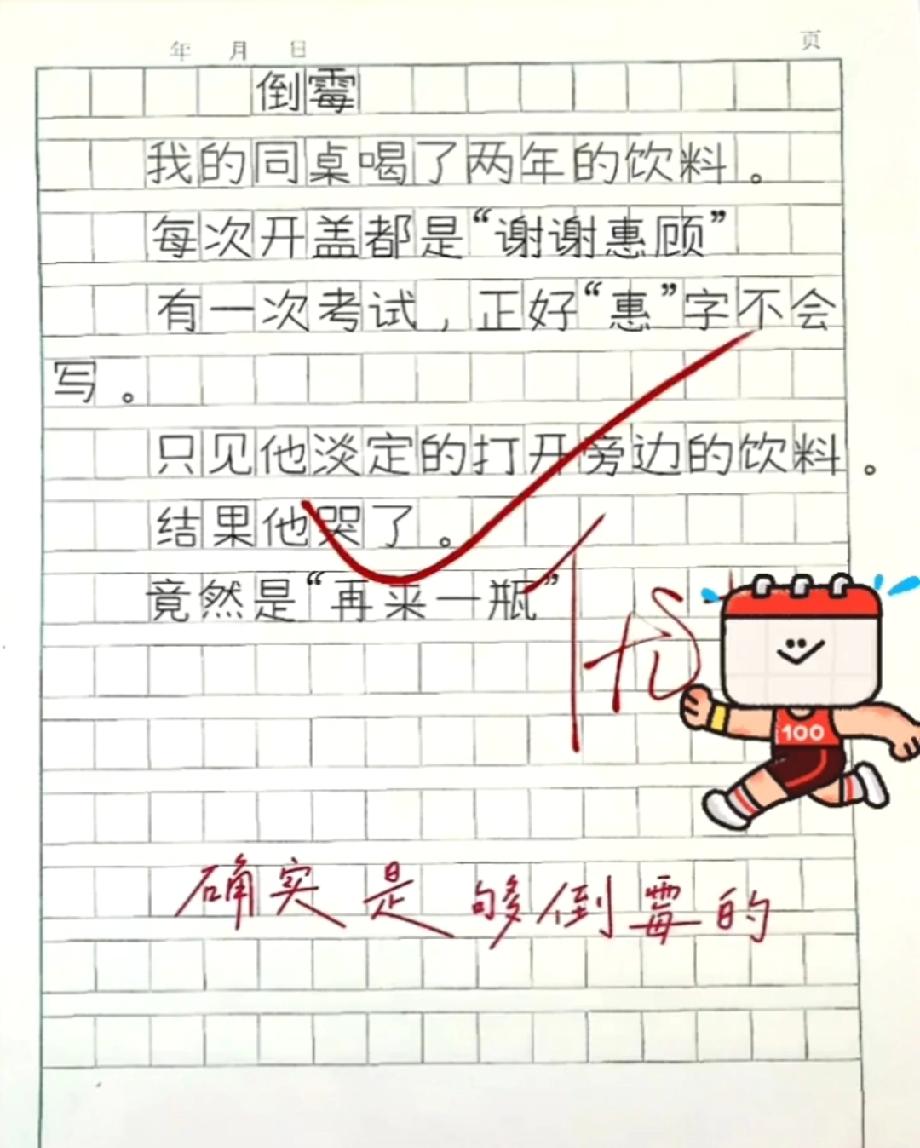 年 月 日
页
倒霉
我的同桌喝了两年的饮料。
每次开盖都是“谢谢惠顾”
有一次考试，正好“惠”字不会
写。
只见他淡定的打开旁边的饮料。
结果他哭了。
竟然是“再来一瓶”
优
100
确实是够倒霉的